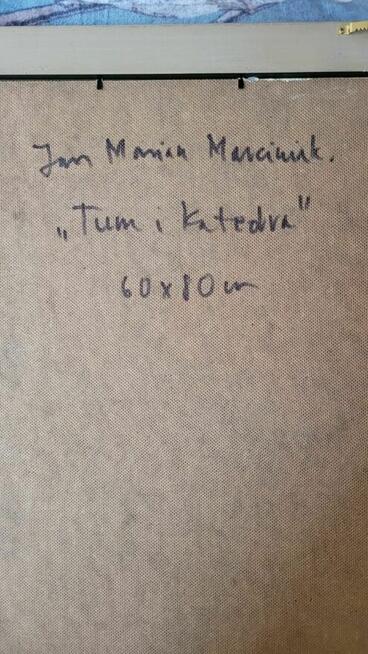 Jan Marian Marciniak.
„Tum i Katedra"
60x80cm